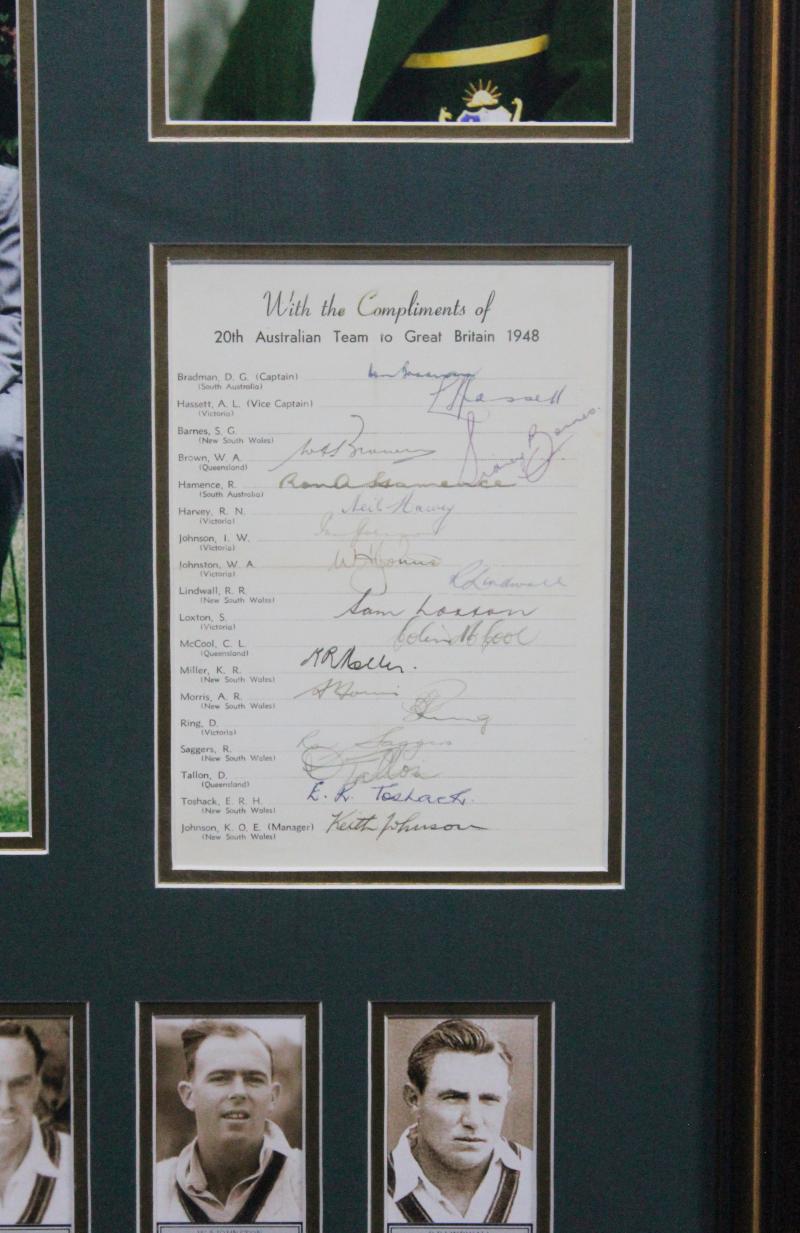 With the Compliments of
20th Australian Team to Great Britain 1948
Bradman, D. G. (Captain)
(South Australia)
Hassett, A. L. (Vice Captain) L Hassett
(Victoria)
Barnes, S. G. Sidney Barnes.
(New South Wales)
Brown, W. A. W A Brown
(Queensland)
Hamence, R. Ron A Hamence
(South Australia)
Harvey, R. N. Neil Harvey
(Victoria)
Johnson, I. W.
(Victoria)
Johnston, W. A.
(Victoria)
Lindwall, R. R. R Lindwall
(New South Wales)
Loxton, S. Sam Loxton
(Victoria)
McCool, C. L. Colin McCool
(Queensland)
Miller, K. R. K R Miller.
(New South Wales)
Morris, A. R. A Morris
(New South Wales)
Ring, D. D Ring
(Victoria)
Saggers, R. Ron Saggers
(New South Wales)
Tallon, D. D Tallon
(Queensland)
Toshack, E. R. H. E. R. Toshack.
(New South Wales)
Johnson, K. O. E. (Manager) Keith Johnson
(New South Wales)